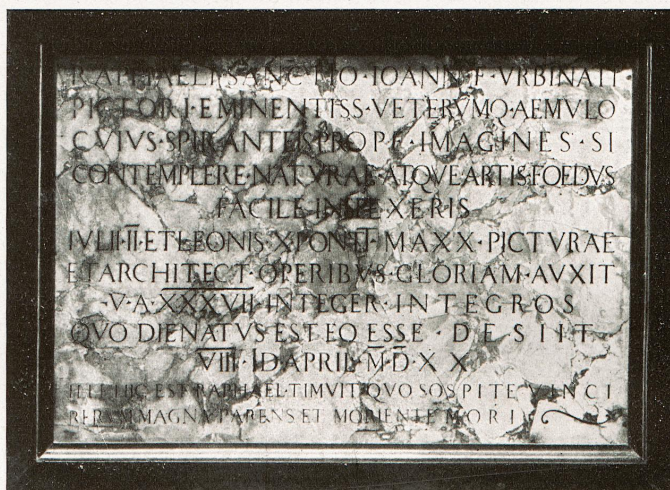 RAPHAELI·SANCTIO·IOANN·F·VRBINATI
PICTORI·EMINENTISS·VETERVMQ·AEMVLO
CVIVS·SPIRANTEIS·PROPE·IMAGINES·SI
CONTEMPLERE·NATVRAE·ATQVE·ARTIS·FOEDVS
FACILE·INSPEXERIS
IVLII·II·ET·LEONIS·X·PONTT·MAXX·PICTVRAE
ET·ARCHITECT·OPERIBVS·GLORIAM·AVXIT
·V·A·XXXVII·INTEGER·INTEGROS
QVO DIE NATVS EST EO ESSE·DESIIT
VIII·ID APRIL·M·D·XX
ILLE HIC EST RAPHAEL·TIMVIT QVO SOSPITE VINCI
RERVM MAGNA PARENS ET MORIENTE MORI